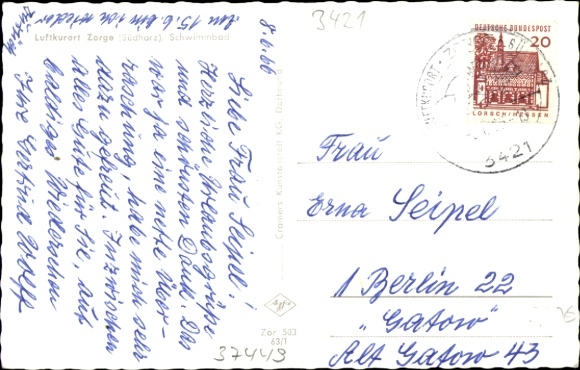 3421
8.6.66
Liebe Frau Seipel!
Herzliche Urlaubsgrüße
und schönsten Dank. Das
war ja eine nette Über-
raschung, habe mich sehr
dazu gefreut. Inzwischen
alles Gute für Sie, auf
baldiges Wiedersehen
Ihre Gertrud Wolff
Am 15.6. bin ich wieder
Luftkurort Zorge (Südharz), Schwimmbad
Cramers Kunstanstalt KG, Dortmund
Zor 503
63/1
37449
DEUTSCHE BUNDESPOST
20
LORSCH/HESSEN
LUFTKURORT
3421
Frau
Erna Seipel
1 Berlin 22
„Gatow"
Alt Gatow 43